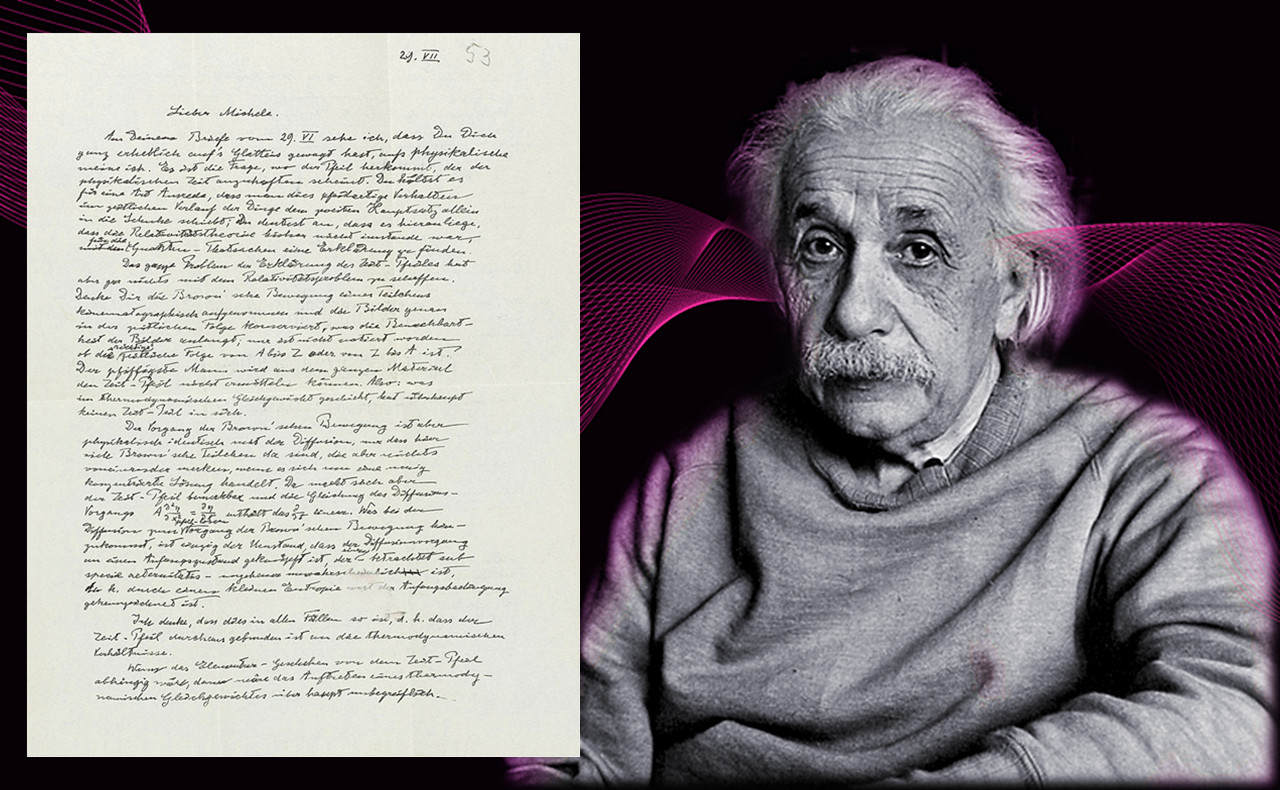 29. VII. 53
Lieber Michele.
In Deinem Briefe vom 29. VI sehe ich, dass Du Dich
ganz erheblich auf's Glatteis gewagt hast, aufs physikalische
meine ich. Es ist die Frage, wo der Pfeil herkommt, der der
physikalischen Zeit anzuhaften scheint. Du hältst es
für eine Art Ausrede, dass man dies pfeilartige Verhalten
im zeitlichen Verlauf der Dinge dem zweiten Hauptsatz allein
in die Schuhe schiebt; Du denkst an, dass es hieran liege,
dass die Relativitätstheorie bisher nicht imstande war,
für die Quanten-Thatsachen eine Erklärung zu finden.
Das ganze Problem der Erklärung des Zeit-Pfeiles hat
aber gar nichts mit dem Relativitätsproblem zu schaffen.
Denke Dir die Brown'sche Bewegung eines Teilchens
kinematographisch aufgenommen und die Bilder genau
in der zeitlichen Folge konserviert, was die Benachbart-
heit der Bilder anlangt; nur ist nicht notiert worden
ob die richtige zeitliche Folge von A bis Z oder von Z bis A ist.
Der pfiffigste Mann wird aus dem ganzen Material
den Zeit-Pfeil nicht ermitteln können. Also: was
im thermodynamischen Gleichgewicht geschieht, hat überhaupt
keinen Zeit-Pfeil in sich.
Der Vorgang der Brown'schen Bewegung ist aber
physikalisch identisch mit der Diffusion, nur dass hier
viele Brown'sche Teilchen da sind, die aber nichts
voneinander merken, wenn es sich um eine wenig
konzentrierte Lösung handelt. Da macht sich aber
der Zeit-Pfeil bemerkbar und die Gleichung des Diffusions-
Vorgangs A ∂²η/∂x² = ∂η/∂t enthält das ∂/∂t linear. Was bei der
Diffusion zum pfeil-losen Vorgang der Brown'schen Bewegung hin-
zukommt, ist einzig der Umstand, dass der Diffusionsvorgang
an einen Anfangszustand geknüpft ist, der betrachtet sub
specie aeternitatis - ungeheuer unwahrscheinlich ist,
d. h. durch einen kleinen Entropie der Anfangsbedingung
gekennzeichnet ist.
Ich denke, dass dies in allen Fällen so ist, d. h. dass der
Zeit-Pfeil durchaus gebunden ist an die thermodynamischen
Verhältnisse.
Wenn das Elementar-Geschehen von dem Zeit-Pfeil
abhängig wäre, dann wäre das Auftreten eines thermody-
namischen Gleichgewichtes überhaupt unbegreiflich.